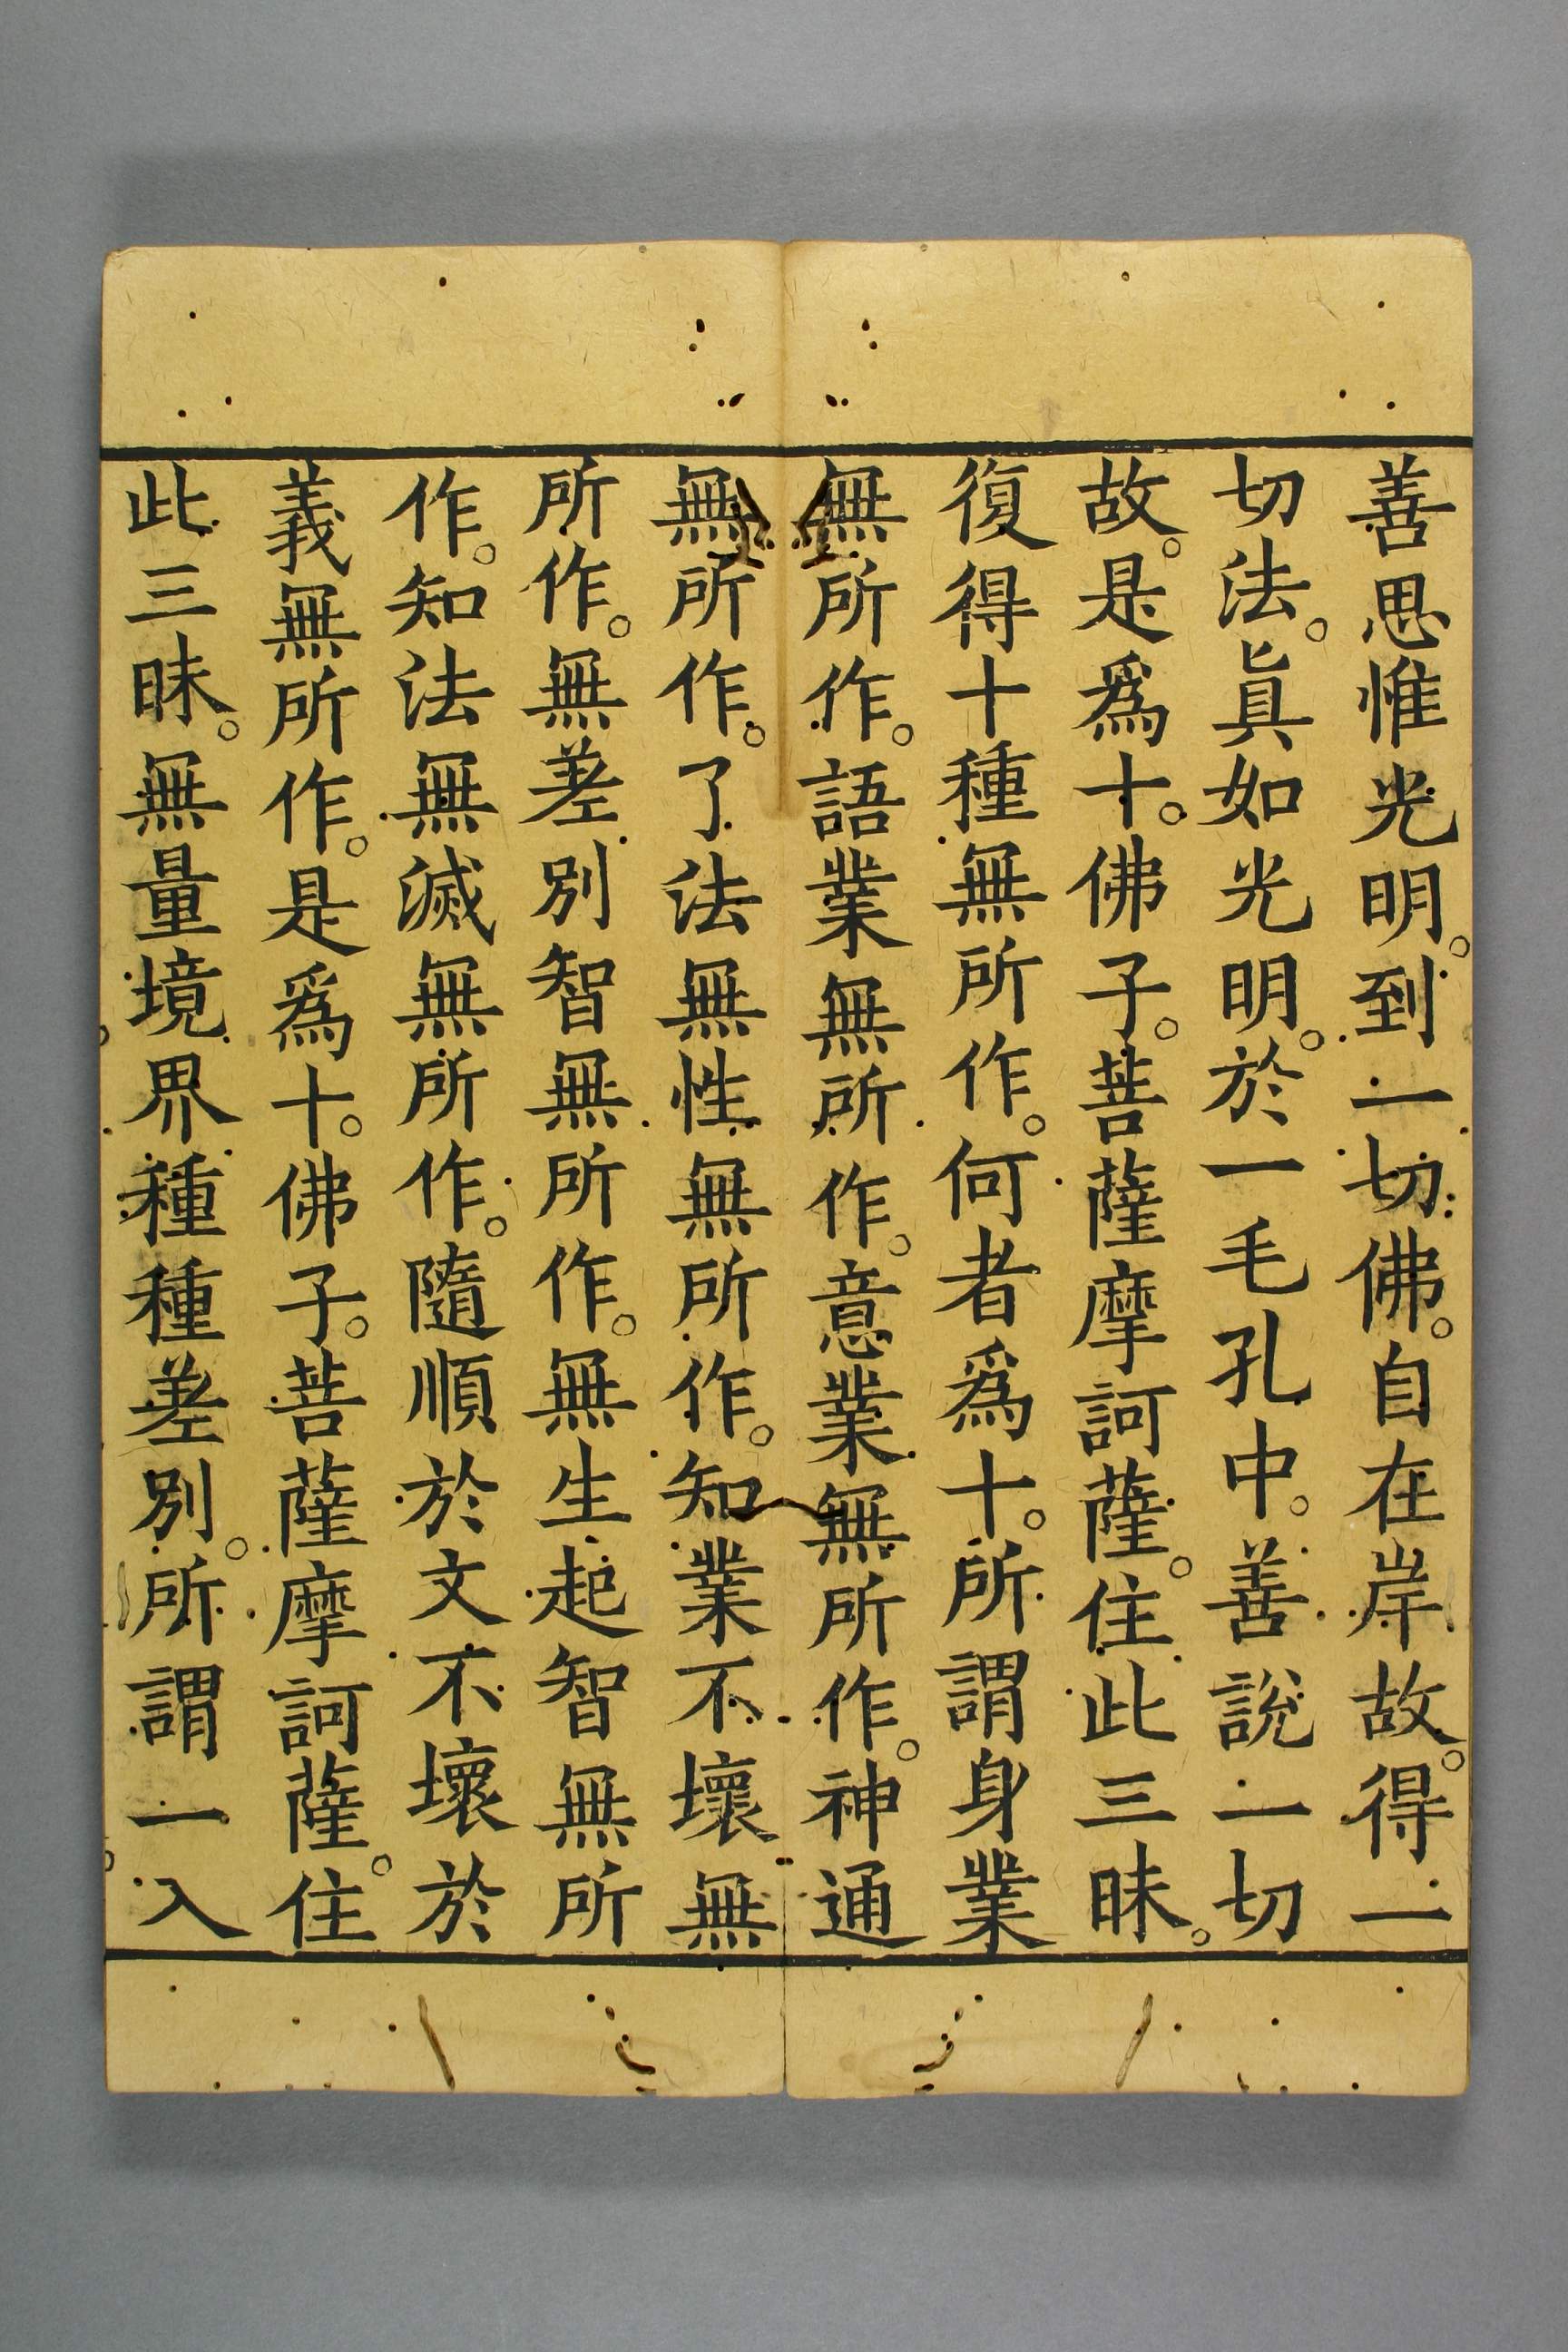 善思惟光明。到一切佛。自在岸故。得一
切法。眞如光明。於一毛孔中。善說一切
故。是爲十。佛子。菩薩摩訶薩。住此三昧。
復得十種無所作。何者爲十。所謂身業
無所作。語業無所作。意業無所作。神通
無所作。了法無性無所作。知業不壞無
所作。無差別智無所作。無生起智無所
作。知法無滅無所作。隨順於文不壞於
義無所作。是爲十。佛子。菩薩摩訶薩。住
此三昧。無量境界種種差別。所謂一入